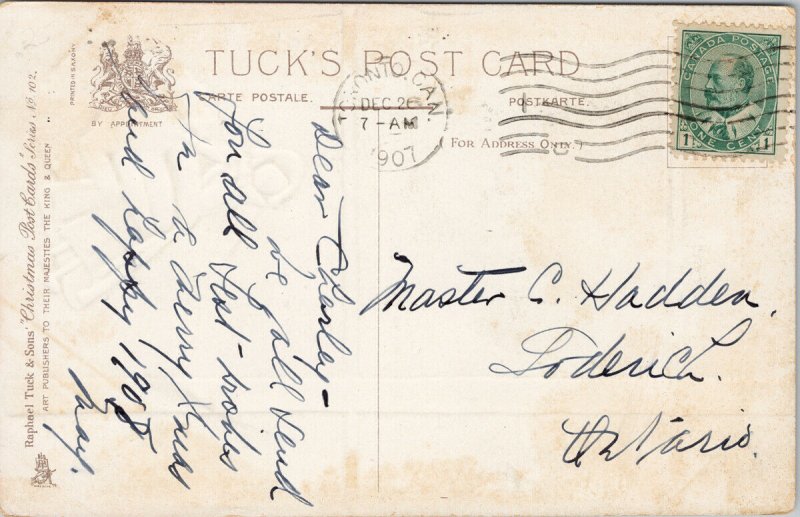 TUCK'S POST CARD
CARTE POSTALE.
POSTKARTE.
BY APPOINTMENT
( FOR ADDRESS ONLY.)
PRINTED IN SAXONY
TORONTO, CAN.
DEC 26
7-AM
1907
CANADA POSTAGE
ONE CENT
1 1
Raphael Tuck & Sons' "Christmas Post Cards" Series No. 102.
ART PUBLISHERS TO THEIR MAJESTIES THE KING & QUEEN
Dear Charley-
We all send
You all best wishes
For a Merry Xmas
and happy 1908
May.
Master C. Hadden.
Goderich.
Ontario.